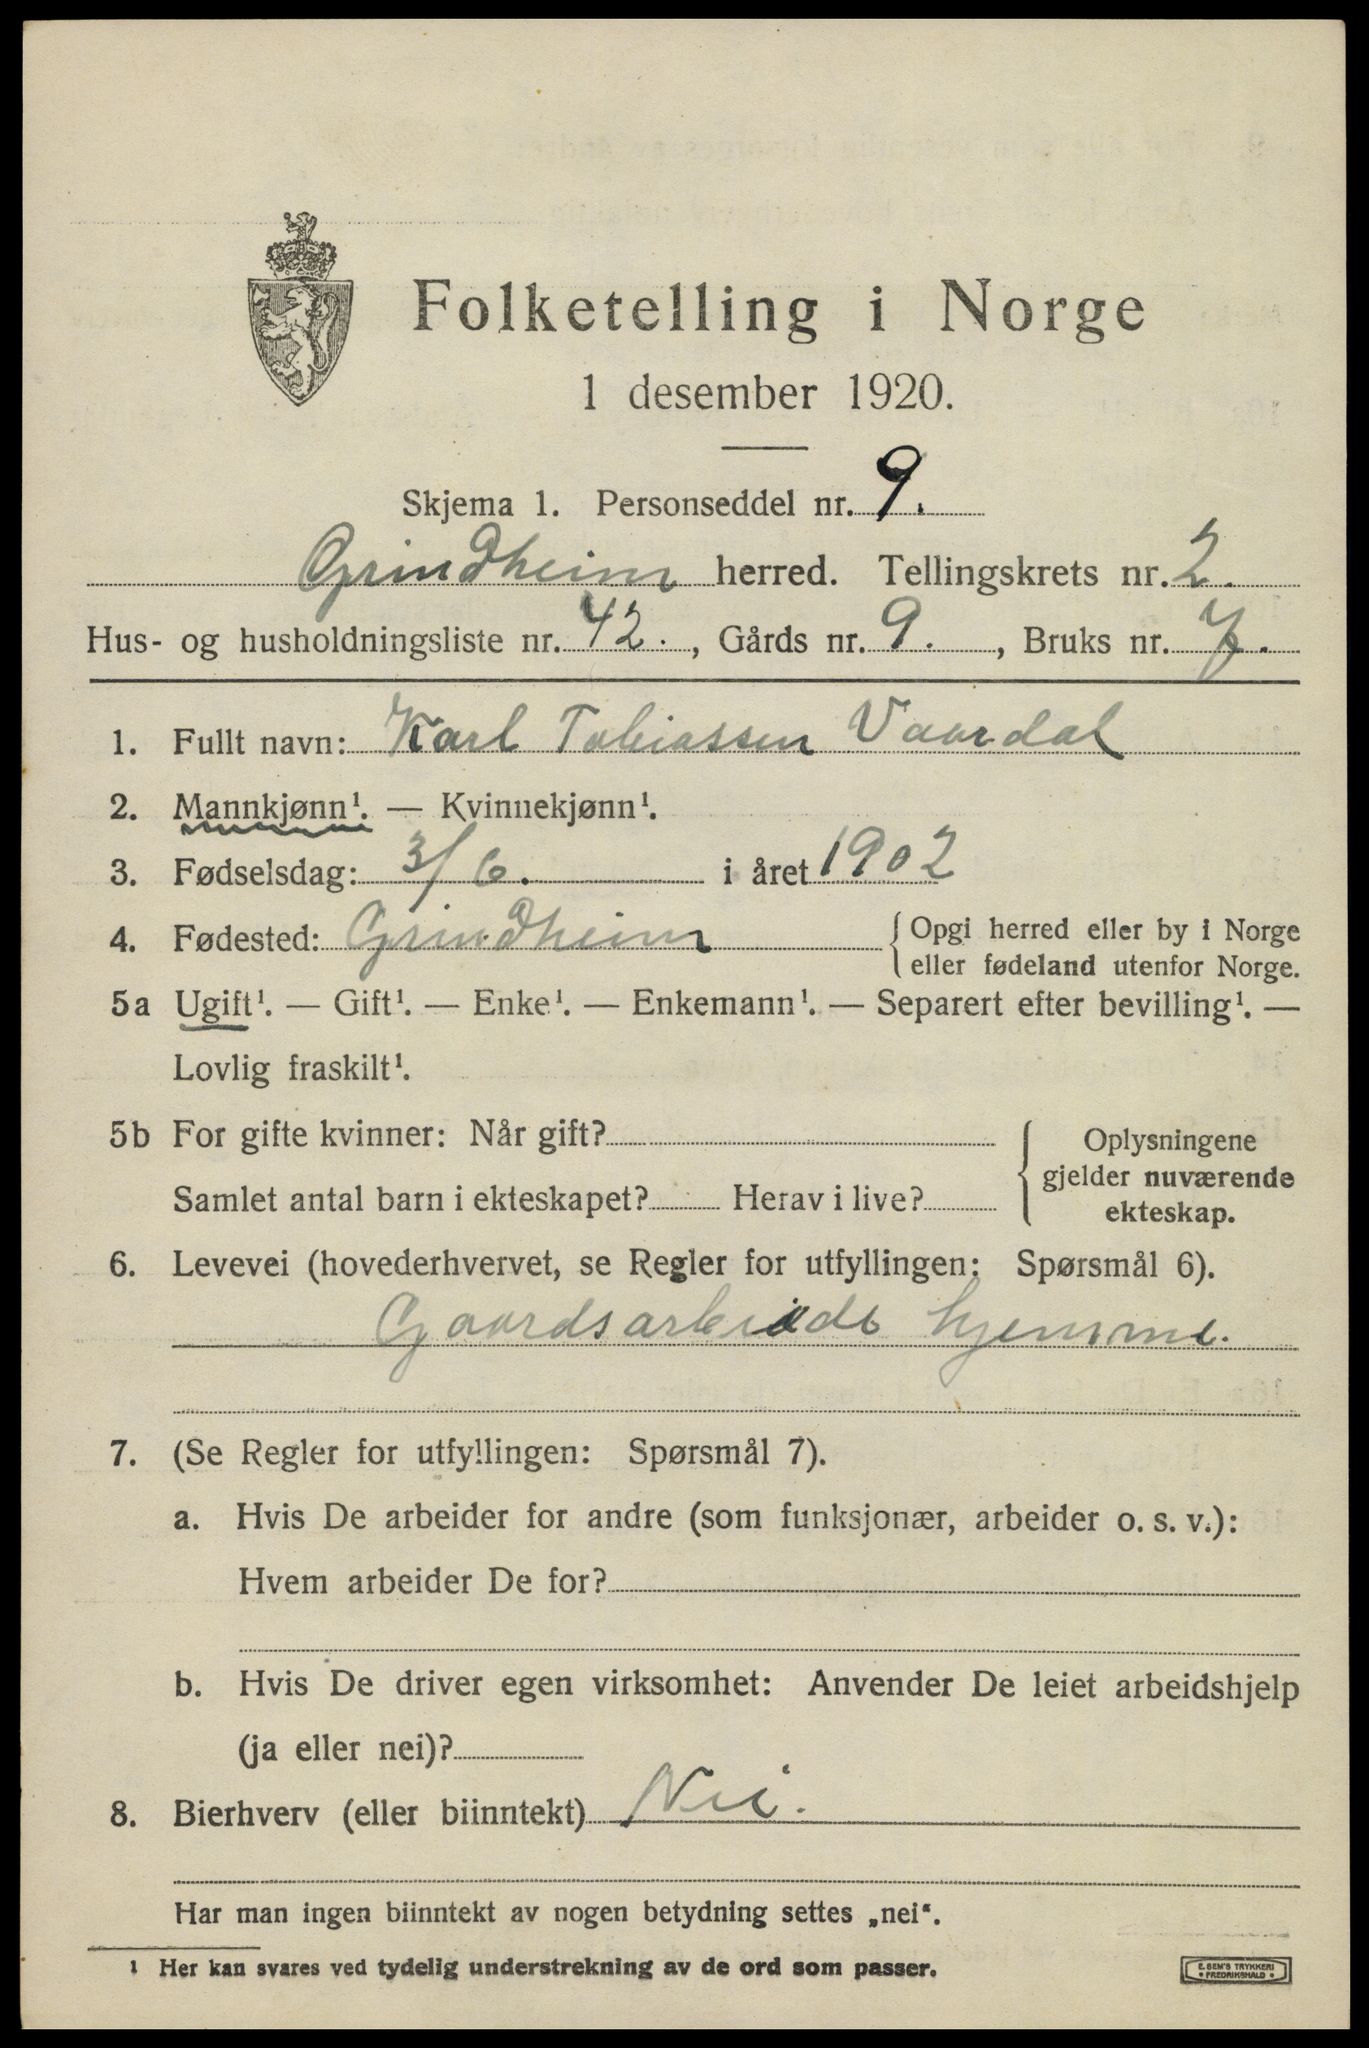 Folketelling i Norge
1 desember 1920.
Skjema 1. Personseddel nr. 9.
Grindheim herred. Tellingskrets nr. 2.
Hus- og husholdningsliste nr. 42., Gårds nr. 9., Bruks nr. 7.
1. Fullt navn: Karl Tobiassen Vaardal
2. Mannkjønn¹. — Kvinnekjønn¹.
3. Fødselsdag: 3/6. i året 1902
4. Fødested: Grindheim { Opgi herred eller by i Norge
eller fødeland utenfor Norge.
5a Ugift¹. — Gift¹. — Enke¹. — Enkemann¹. — Separert efter bevilling¹. —
Lovlig fraskilt¹.
5b For gifte kvinner: Når gift?
Samlet antal barn i ekteskapet? Herav i live?
Oplysningene
gjelder nuværende
ekteskap.
6. Levevei (hovederhvervet, se Regler for utfyllingen: Spørsmål 6).
Gaardsarbeide hjemme.
7. (Se Regler for utfyllingen: Spørsmål 7).
a. Hvis De arbeider for andre (som funksjonær, arbeider o. s. v.):
Hvem arbeider De for?
b. Hvis De driver egen virksomhet: Anvender De leiet arbeidshjelp
(ja eller nei)?
8. Bierhverv (eller biinntekt) Nei.
Har man ingen biinntekt av nogen betydning settes „nei“.
1 Her kan svares ved tydelig understrekning av de ord som passer.
E. SEM'S TRYKKERI
• FREDRIKSHALD •